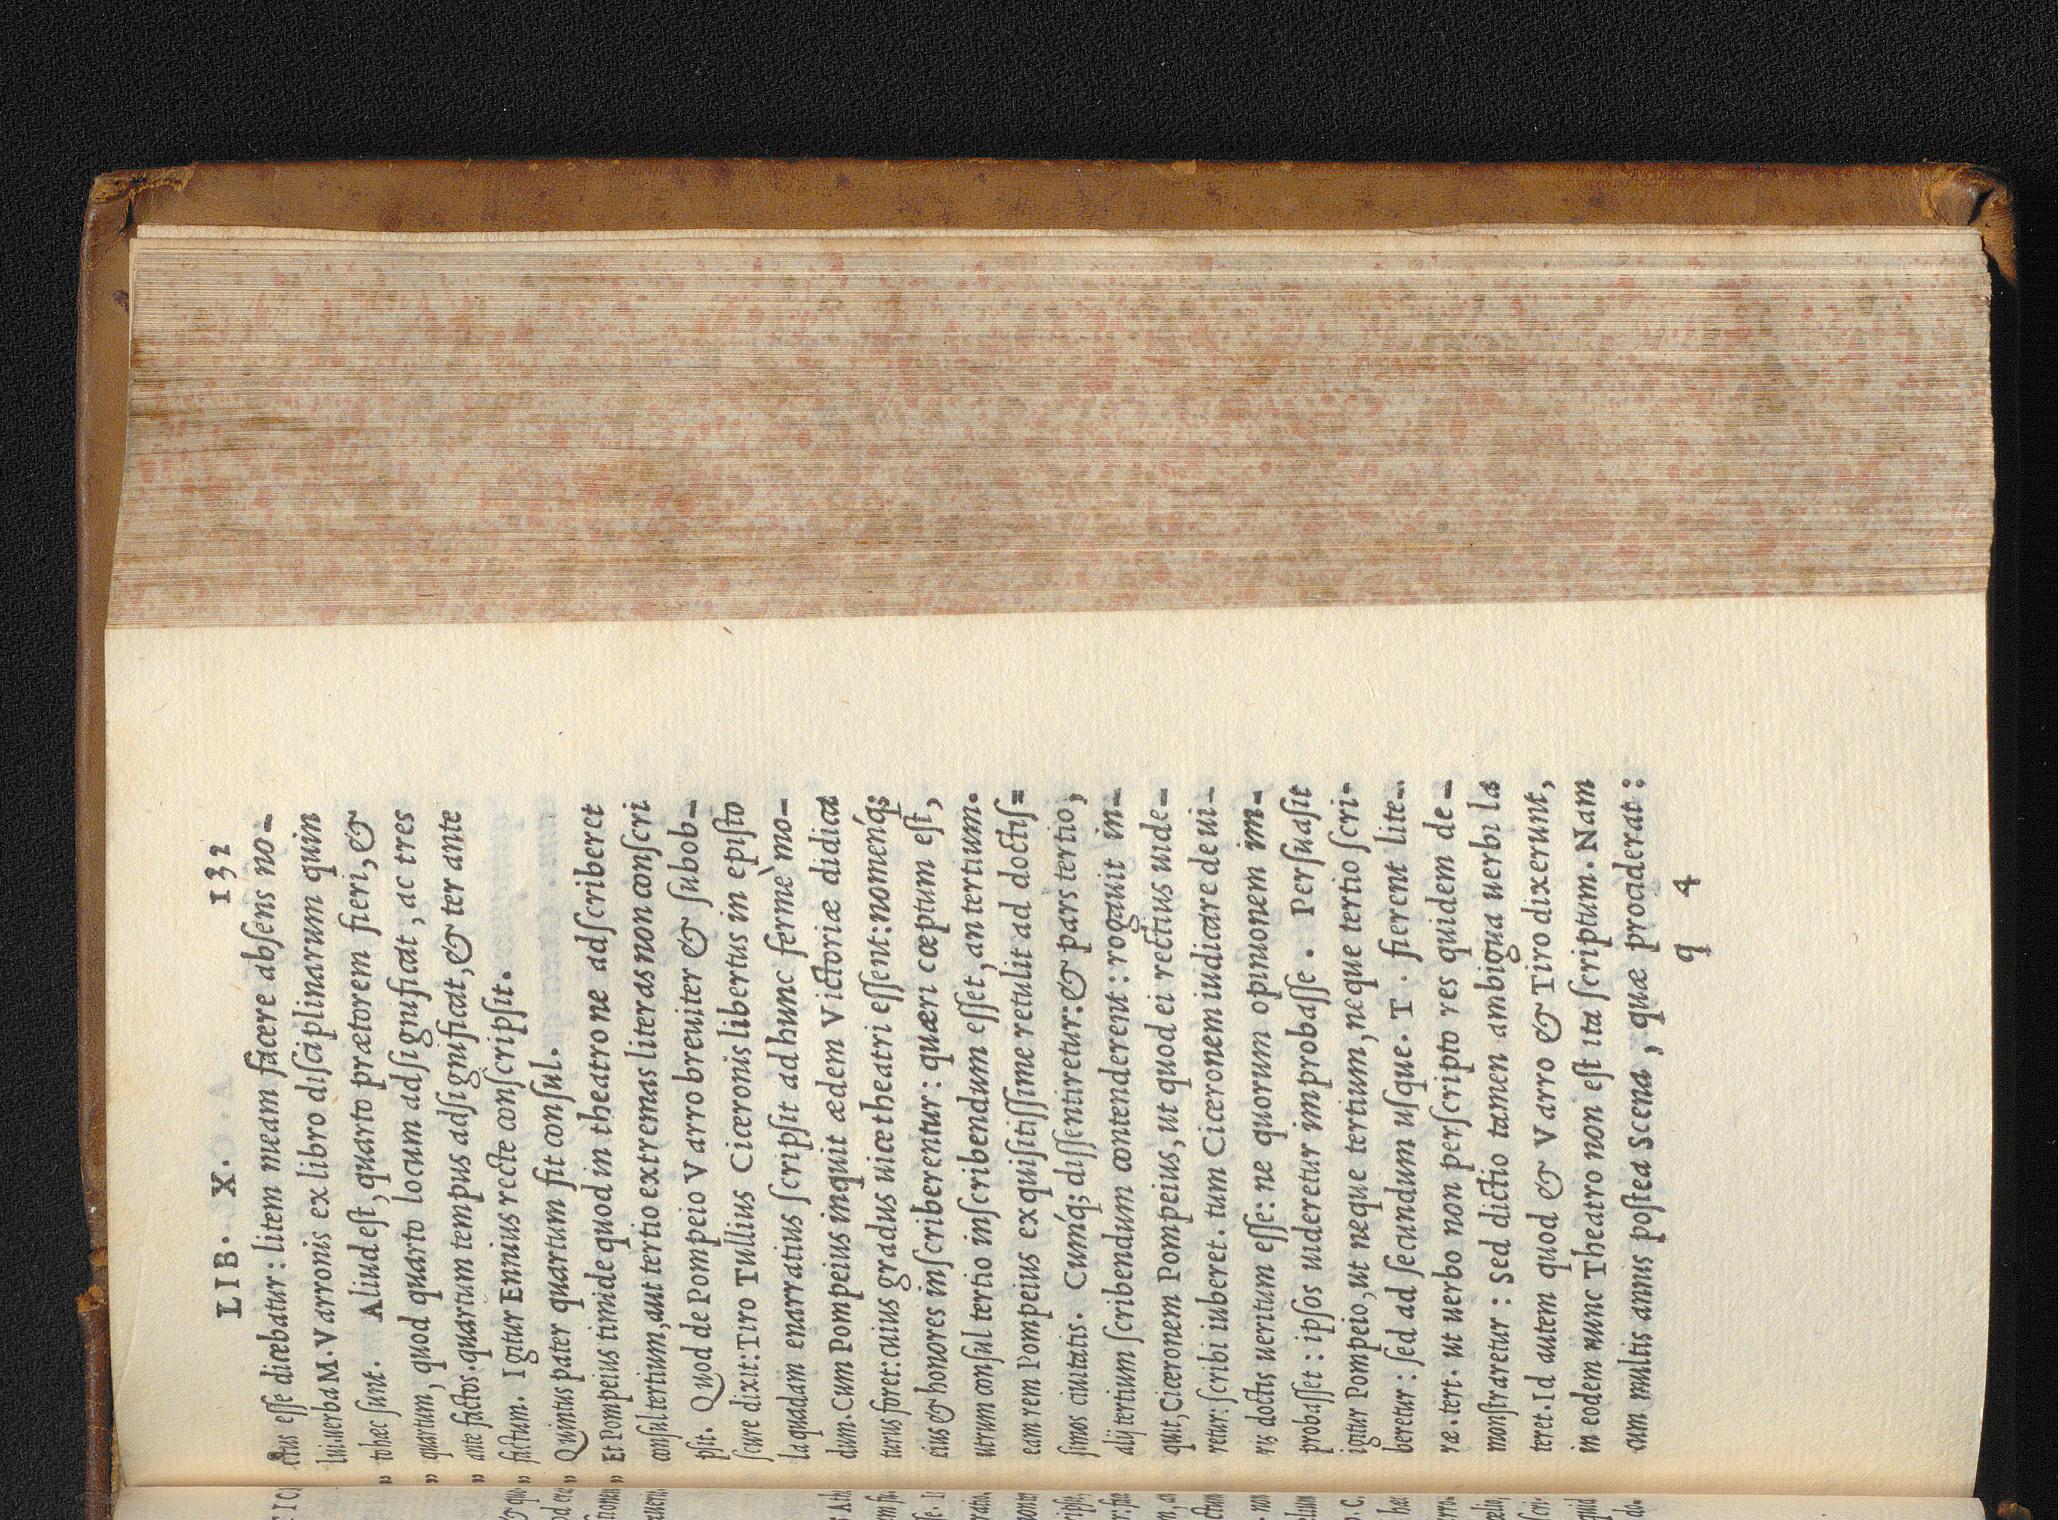 LIB. X. 132
ctius esse dicebatur: litem meam facere absens no-
lui.uerba M. Varronis ex libro disciplinarum quin
„ to hæc sunt. Aliud est, quarto prætorem fieri, &
„ quartum, quod quarto locum adsignificat, ac tres
„ ante factos. quartum tempus adsignificat, & ter ante
„ factum. Igitur Ennius recte conscripsit.
„ Quintus pater quartum fit consul.
„ Et Pompeius timide quod in theatro ne adscriberet
consul tertium, aut tertio extremas literas non conscri
psit. Quod de Pompeio Varro breuiter & subob-
scure dixit: Tiro Tullius Ciceronis libertus in episto
la quadam enarratius scripsit ad hunc fermè mo-
dum. Cum Pompeius inquit ædem Victoriæ dicica
turus foret: cuius gradus uice theatri essent: nomenq́;
eius & honores inscriberentur: quæri cœptum est,
utrum consul tertio inscribendum esset, an tertium.
eam rem Pompeius exquisitissime retulit ad doctis=
simos ciuitatis. Cumq́; dissentiretur: & pars tertio,
alij tertium scribendum contenderent: rogauit in-
quit, Ciceronem Pompeius, ut quod ei rectius uide-
retur: scribi iuberet. tum Ciceronem iudicare de ui-
ris doctis ueritum esse: ne quorum opinionem im-
probasset: ipsos uideretur improbasse. Persuasit
igitur Pompeio, ut neque tertium, neque tertio scri-
beretur: sed ad secundum usque. T. fierent lite-
ræ. tert. ut uerbo non perscripto res quidem de-
monstraretur: Sed dictio tamen ambigua uerbi la
teret. Id autem quod & Varro & Tiro dixerunt,
in eodem nunc Theatro non est ita scriptum. Nam
cum multis annis postea Scena, quæ prociderat:
q 4